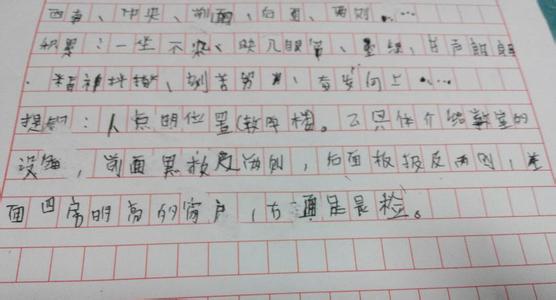 西南、中央、前面、后面、两侧、…
积累：一尘不染、映入眼帘、墨绿、书声朗朗
、精神抖擞、刻苦努力、奋发向上…
提纲：人点明位置(教学楼。2具体介绍教室的
设施，前面黑板及两侧，后面板报及两侧，
面四扇明亮的窗户，右